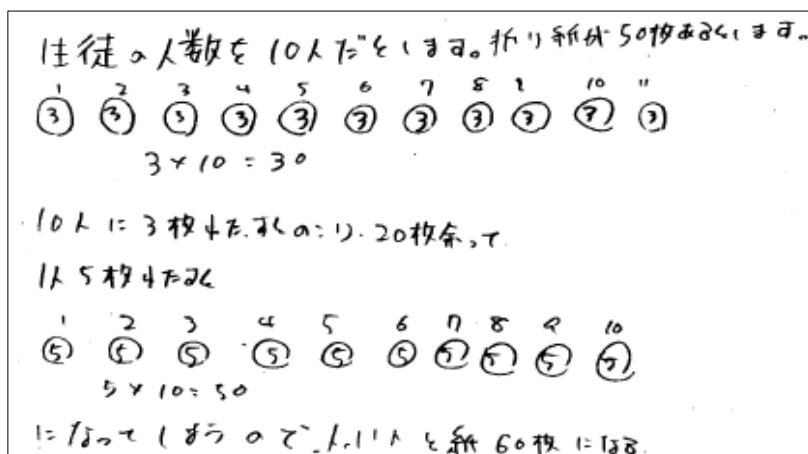 生徒の人数を10人だとします。折り紙が50枚あるとします。
1 2 3 4 5 6 7 8 9 10 11
3 3 3 3 3 3 3 3 3 3 3
3×10=30
10人に3枚わたすとのこり.20枚余って
1人5枚わたすと
1 2 3 4 5 6 7 8 9 10
5 5 5 5 5 5 5 5 5 5
5×10=50
になってしまうので、人と紙60枚になる.